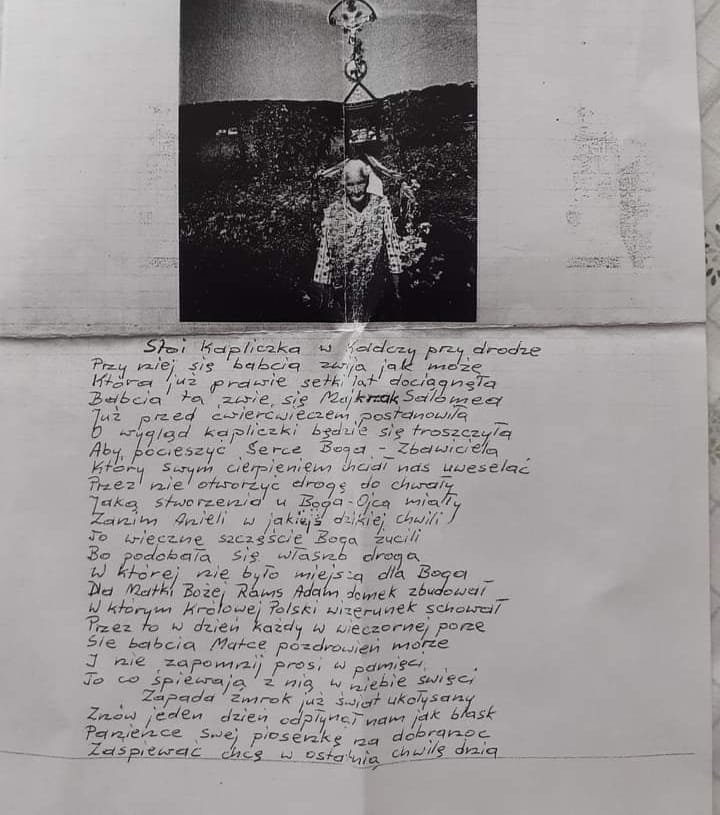 Stoi Kapliczka w Kadczy przy drodze
Przy niej się babcia zwija jak może
Która już prawie setki lat dociągnęta
Babcia ta zwie się Majkrzak Salomea
Już przed ćwierćwieczem postanowiła
O wygląd kapliczki będzie się troszczyła
Aby pocieszyć Serce Boga - Zbawiciela
Który swym cierpieniem chciał nas uweselać
Przez nie otworzyć drogę do chwały
Jaką stworzenia u Boga-Ojca miały
Zanim Anieli w jakiejś dzikiej chwili
To wieczne szczęście Boga żucili
Bo podobała się własna droga
W której nie było miejsca dla Boga
Dla Matki Bożej Rams Adam domek zbudował
W którym Królowej Polski wizerunek schował
Przez to w dzień każdy w wieczornej porze
Śle babcia Matce pozdrowień morze
I nie zapomnij prosi w pamięci
To co śpiewają z nią w niebie święci
Zapada zmrok już świat ukołysany
Znów jeden dzień odpłynął nam jak blask
Panience swej piosenkę na dobranoc
Zaśpiewać chcę w ostatnią chwilę dnia